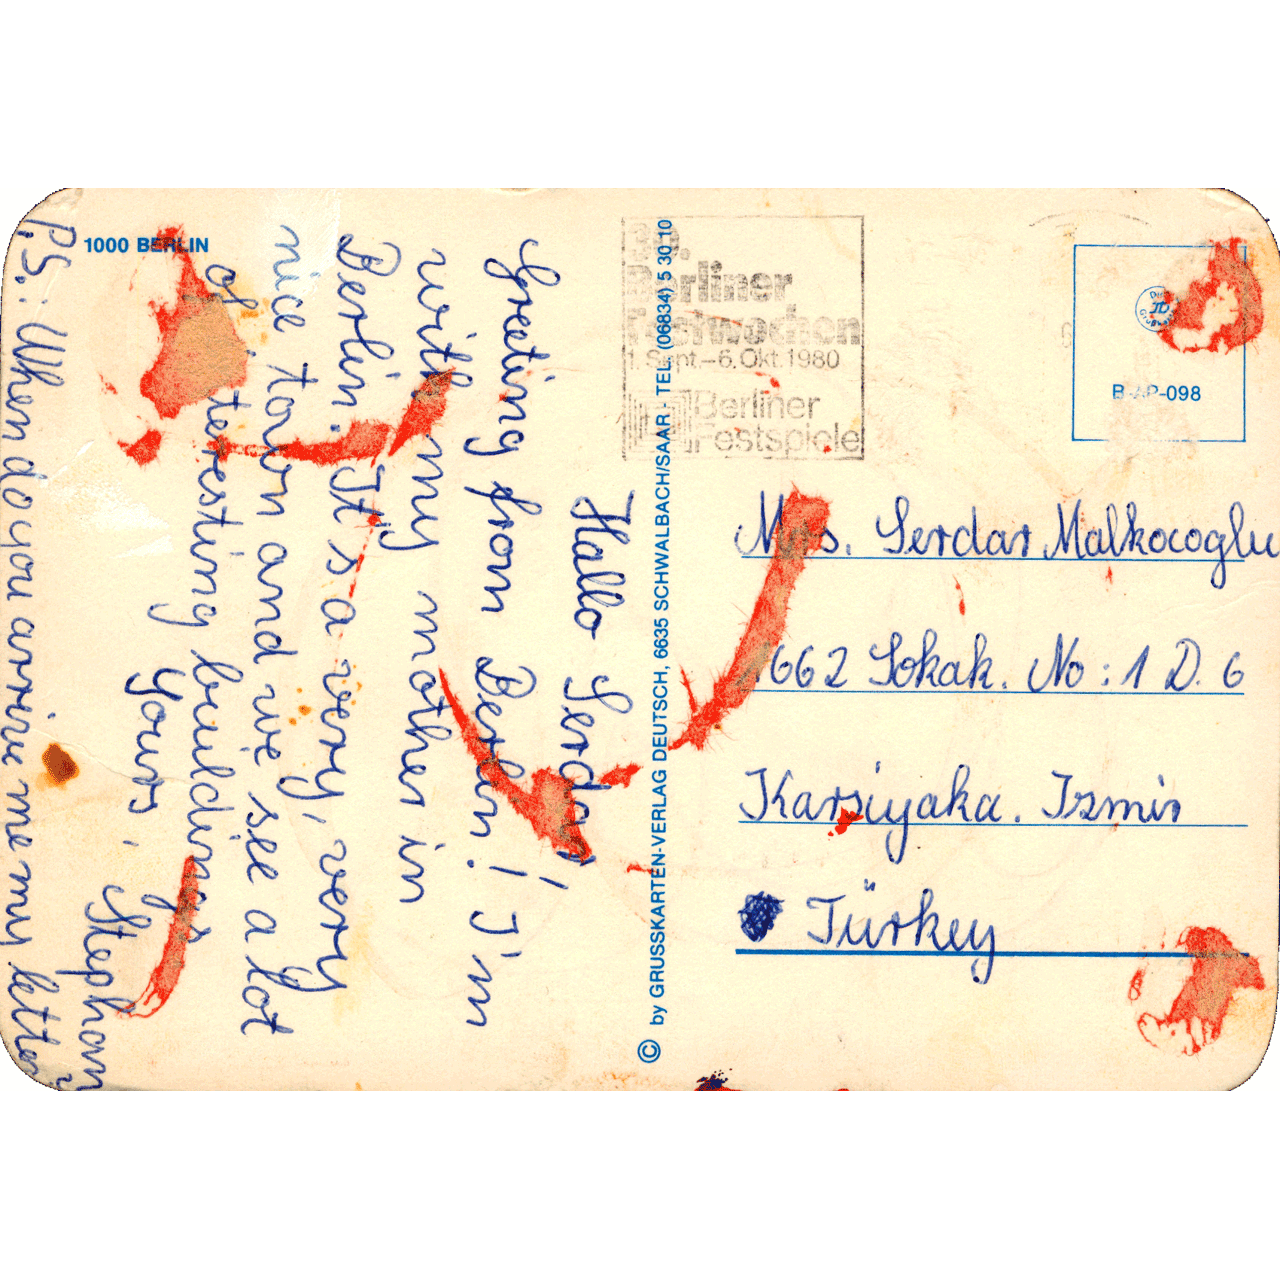 1000 BERLIN
Hallo Serdar!
Greeting from Berlin! I'm
with my mother in
Berlin. It's a very, very
nice town and we see a lot
of interesting buildings
Yours,
Stephan
P.S.: When do you arrive me my letter?
© by GRUSSKARTEN-VERLAG DEUTSCH, 6635 SCHWALBACH/SAAR - TEL. (06834) 5 30 10
30.
Berliner
Festwochen
1. Sept.–6. Okt. 1980
Berliner
Festspiele
B-AP-098
Mrs. Serdar Malkocoglu
1662 Sokak. No: 1 D. 6
Karsiyaka. Izmir
Türkey